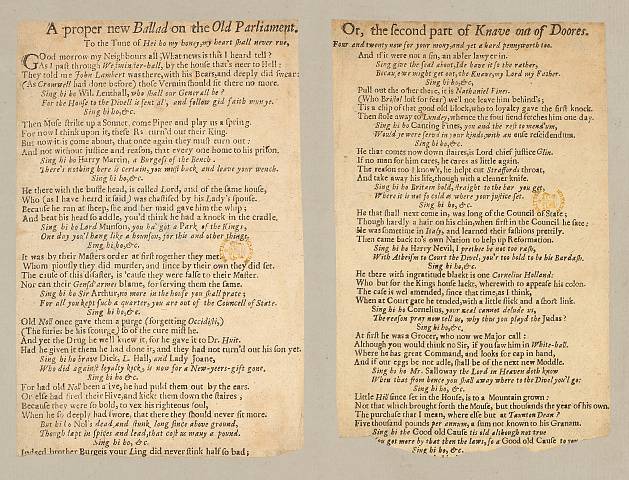 A proper new Ballad on the Old Parliament.
To the Tune of Hei ho my honey, my heart shall never rue,
GOod morrow my Neighbours all, What news is this I heard tell?
As I past through Westminster-hall, by the house that's neer to Hell:
They told me John Lambert was there, with his Bears, and deeply did swear:
(As Cromwell had done before) those Vermin should sit there no more.
Sing hi ho Wil. Lenthall, who shall our Generall be?
For the House to the Divel is sent al', and follow gid faith mun ye.
Sing hi ho, &c.
Then Muse strike up a Sonnet, come Piper and play us a spring.
For now I think upon it, these Rs turn'd out their King.
But now it is come about, that once again they must turn out:
And not without justice and reason, that every one home to his prison.
Sing hi ho Harry Martin, a Burgess of the Bench.
There's nothing here is certain, you must back, and leave your wench.
Sing hi ho, &c.
He there with the bussle head, is called Lord, and of the same house,
Who (as I have heard it said) was chastised by his Lady's spouse.
Because he ran at sheep, she and her maid gave him the whip;
And beat his head so addle, you'd think he had a knock in the cradle.
Sing hi ho Lord Munson, you ha' got a Park of the Kings,
One day you'l hang like a hounson, for this and other things.
Sing hi ho, &c.
It was by their Masters order at first together they met
Whom piously they did murder, and since by their own they did set.
The cause of this disaster, is 'cause they were false to their Master.
Nor can their Gensd'armes blame, for serving them the same.
Sing hi ho Sir Arthur, no more in the house you shall prate;
For all you kept such a quarter, you are out of the Councell of State.
Sing hi ho, &c.
Old Noll once gave them a purge (forgetting Occidisti,)
(The furies be his scourge) so of the cure must he.
And yet the Drug he well knew it, for he gave it to Dr. Huit.
Had he given it them he had done it, and they had not turn'd out his son yet.
Sing hi ho brave Dick, L. Hall, and Lady Joane,
Who did against loyalty kick, is now for a New-yeers-gift gone,
Sing hi ho, &c.
For had old Nol been alive, he had pull'd them out by the ears.
Or else had fired their Hive, and kickt them down the staires;
Because they were so bold, to vex his righteous soul,
When he so deeply had swore, that there they should never sit more.
But hi ho Nol's dead, and stunk long since above ground,
Though lapt in spices and lead, that cost us many a pound.
Sing hi ho, &c.
Indeed brother Burgess your Ling did never stink half so bad;
Or, the second part of Knave out of Doores.
Four and twenty now for your mony, and yet a hard pennyworth too.
And if it were not a sin, an abler lawyer in.
Sing give the seal about, Ide have it so the rather,
Because, we might get out, the Knave, my Lord my Father.
Sing hi ho, &c.
Pull out the other there, it is Nathaniel Fines.
(Who Bristol lost for fear) we'l not leave him behind's;
Tis a chip of that good old block, who to loyalty gave the first knock.
Then stole away to Lundey, whence the foul fiend fetches him one day.
Sing hi ho Canting Fines, you and the rest to mend'um,
Would ye were served in your kinds, with an ense rescidendum.
Sing hi ho, &c.
He that comes now down staires, is Lord chief justice Glin.
If no man for him cares, he cares as little again.
The reason too I know't, he helpt cut Straffords throat,
And take away his life, though with a cleaner knife.
Sing hi ho Britain bold, straight to the bar you get,
Where it is not so cold as where your justice set.
Sing hi ho, &c.
He that shall next come in, was long of the Council of State;
Though hardly a hair on his chin, when first in the Council he sate;
He was sometime in Italy, and learned their fashions prettily.
Then came back to's own Nation to help up Reformation.
Sing hi ho Harry Nevil, I prethee be not too rash,
With Atheism to Court the Divel, you'r too bold to be his Bardash.
Sing hi ho, &c.
He there with ingratitude blackt is one Cornelius Holland:
Who but for the Kings house lackt, wherewith to appease his colon.
The case is wel amended, since that time, as I think,
When at Court gate he tended, with a little stick and a short link.
Sing hi ho Cornelius, your zeal cannot delude us,
The reason pray now tell us, why thus you playd the Judas?
Sing hi ho, &c.
At first he was a Grocer, who now we Major call:
Although you would think no Sir, if you saw him in White-hall.
Where he has great Command, and looks for cap in hand,
And if our eggs be not adle, shall be of the next new Moddle.
Sing hi ho Mr. Salloway the Lord in Heaven doth know
When that from hence you shall away where to the Divel you'l go:
Sing hi ho, &c.
Little Hill since set in the House, is to a Mountain grown:
Not that which brought forth the Mouse, but thousands the year of his own.
The purchase that I mean, where else but at Taunton Dean?
Five thousand pounds per annum, a sum not known to his Granam.
Sing hi ho the Good old Cause tis old although not true
You got more by that then the laws, so a Good old Cause to you
Sing hi ho, &c.